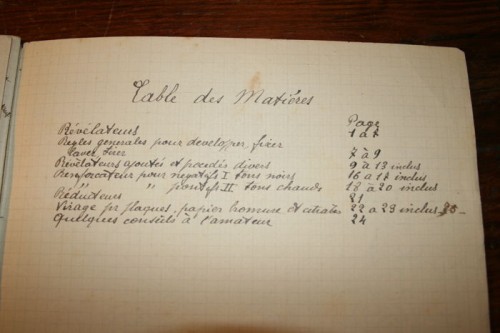 Table des Matières
Page
Révélateurs 1 à 7
Règles generales pour developper, fixer
laver, 7 à 9
Révélateurs ajoutés et procédés divers 9 à 13 inclus
Renforcateur pour négatifs I tons noirs 16 a 17 inclus
" " " positifs II tons chauds 18 à 20 inclus
Réducteurs 21
Virage pr plaques, papier bromure et 22 a 23 inclus
Quelques conseils à l'amateur 24